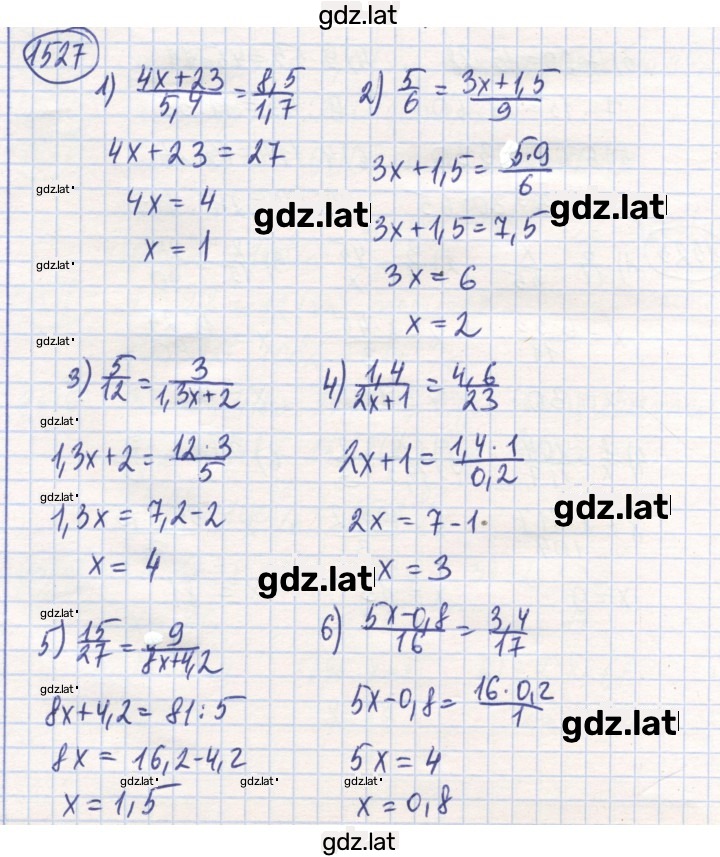 gdz.lat
1527
1) (4x+23)/(5,4) = (8,5)/(1,7)
4x+23 = 27
4x = 4
x = 1
2) 5/6 = (3x+1,5)/9
3x+1,5 = (5·9)/6
3x+1,5 = 7,5
3x = 6
x = 2
gdz.lat
gdz.lat
gdz.lat
gdz.lat
gdz.lat
3) 5/12 = 3/(1,3x+2)
1,3x+2 = (12·3)/5
1,3x = 7,2-2
x = 4
4) (1,4)/(2x+1) = (4,6)/23
2x+1 = (1,4·1)/(0,2)
2x = 7-1
x = 3
gdz.lat
gdz.lat
gdz.lat
gdz.lat
5) 15/27 = 9/(8x+4,2)
8x+4,2 = 81:5
8x = 16,2-4,2
x = 1,5
6) (5x-0,8)/16 = (3,4)/17
5x-0,8 = (16·0,2)/1
5x = 4
x = 0,8
gdz.lat
gdz.lat
gdz.lat
gdz.lat
gdz.lat
gdz.lat
gdz.lat